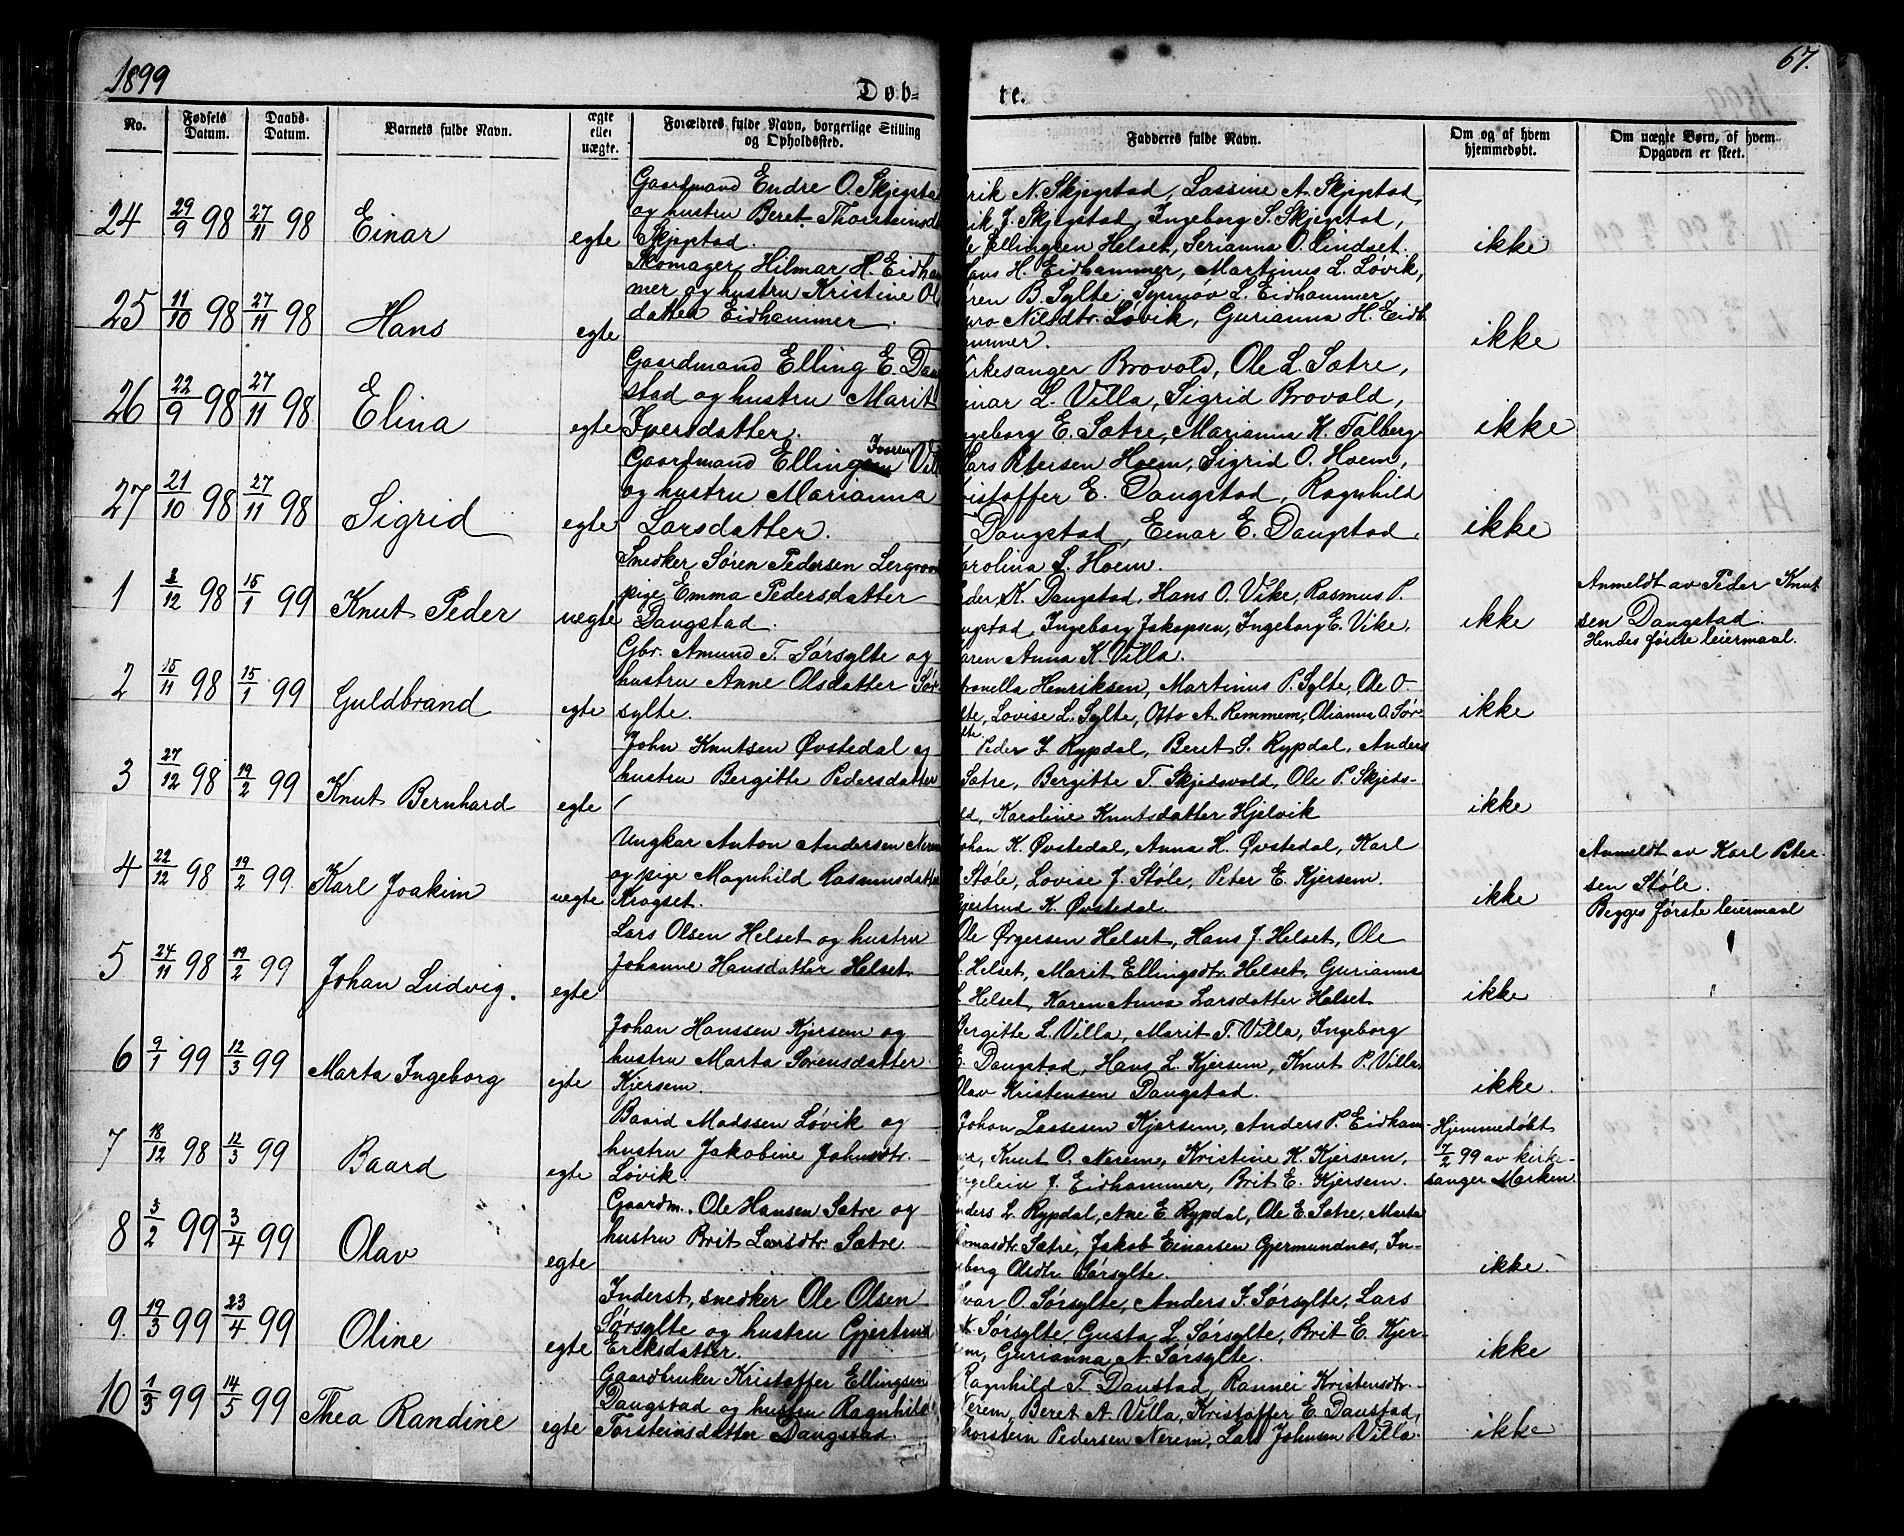 1899
67.
Døb-
te.
No.
Fødsels Datum.
Daabs-Datum.
Barnets fulde Navn.
ægte eller uægte.
Forældres fulde Navn, borgerlige Stilling og Opholdssted.
Fadderes fulde Navn.
Om og af hvem hjemmedøbt.
Om uægte Børn, af hvem Opgaven er skeet.
24 29/9 98 27/11 98 Einar egte
Gaardmand Endre O. Skjegsta
og hustru Beret Thorsteinsd
Skjegstad.
rik N. Skjegstad, Lassine A. Skjegstad,
ik J. Skjegstad, Ingeborg S. Skjegstad,
Ellingsen Helset, Serianna O. Lindset.
ikke
25 11/10 98 27/11 98 Hans egte
Skomager Hilmar H. Eidha
mer og hustru Kristine Ol
datter Eidhammer.
Hans H. Eidhammer, Martinus L. Løvik,
øren B. Sylte, Synnøv L. Eidhammer
uro Nilsdtr. Løvik, Gurianna H. Eidh
ammer.
ikke
26 22/9 98 27/11 98 Elina egte
Gaardmand Elling E. Dau
stad og hustru Marit
Iversdatter.
irkesanger Brovold, Ole L. Sætre,
inar L. Villa, Sigrid Brovold,
ngeborg E. Sætre, Marianna K. Talberg
ikke
27 21/10 98 27/11 98 Sigrid egte
Gaardmand Elling Iversen Vill
og hustru Marianna
Larsdatter.
Lars Petersen Hoem, Sigrid O. Hoem,
ristoffer E. Daugstad, Ragnhild
Daugstad, Einar E. Daugstad,
Karolina L. Hoem.
ikke
1 3/12 98 15/1 99 Knut Peder uegte
Snedker Søren Pedersen Lergrovn
pige Emma Pedersdatter
Daugstad.
Peder K. Daugstad, Hans O. Vike, Rasmus P.
augstad, Ingeborg Jakopsen, Ingeborg E. Vike,
Karen Anna K. Villa.
ikke
Anmeldt av Peder Knut
sen Daugstad.
Hendes første leiermaal.
2 15/11 98 15/1 99 Guldbrand egte
Gbr. Amund T. Sørsylte og
hustru Anne Olsdatter Sør-
sylte.
tronella Henriksen, Martinus P. Sylte, Ole O.
lte, Lovise L. Sylte, Otto A. Remmem, Olianna O. Sør-
lte.
ikke
3 27/12 98 19/2 99 Knut Bernhard egte
John Knutsen Øvstedal og
hustru Bergitte Pedersdatter
Peder J. Rypdal, Beret S. Rypdal, Anders
Sætre, Bergitte T. Skjedsvold, Ole P. Skjeds-
ld, Karoline Knutsdatter Hjelvik
ikke
4 22/12 98 19/2 99. Karl Joakim uegte
Ungkar Anton Andersen Nerem
og pige Magnhild Rasmusdatter
Krogset.
Johan K. Øvstedal, Anna H. Øvstedal, Karl
Støle, Lovise J. Støle, Peter E. Kjersem.
Gjertrud K. Øvstedal.
ikke
Anmeldt av Karl Peter-
sen Støle.
Begges første leiermaal
5 24/11 98 19/2 99 Johan Ludvig. egte
Lars Olsen Helset og hustru
Johanne Hansdatter Helset.
Ole Ørgersen Helset, Hans J. Helset, Ole
L. Helset, Marit Ellingsdtr. Helset, Gurianna
L. Helset, Karen Anna Larsdatter Helset
ikke
6 9/1 99 12/3 99 Marta Ingeborg egte
Johan Hanssen Kjersem og
hustru Marta Sørensdatter
Kjersem.
Bergitte L. Villa, Marit T. Villa, Ingeborg
E. Daugstad, Hans L. Kjersem, Knut P. Villa,
Olav Kristensen Daugstad.
ikke.
7 18/12 98 12/3 99 Baard egte
Baard Madssen Løvik og
hustru Jakobine Johnsdtr.
Løvik.
Johan Lassesen Kjersem, Anders P. Eidham-
er, Knut O. Nerem, Kristine H. Kjersem,
ngeleiv J. Eidhammer, Brit E. Kjersem.
Hjemmedøbt
7/2 99 av kirke-
sanger Marken
8 3/2 99 3/4 99 Olav egte
Gaardm. Ole Hansen Sætre og
hustru Brit Larsdtr. Sætre.
nders L. Rypdal, Ane E. Rypdal, Ole E. Sætre, Marta
homasdtr. Sætre, Jakob Einarsen Gjermundnes, In-
eborg Olsdtr. Sørsylte.
ikke.
9. 19/3 99 23/4 99 Oline egte
Inderst, snedker Ole Olsen
Sørsylte og hustru Gjertrud
Eriksdatter.
Ivar O. Sørsylte, Anders J. Sørsylte, Lars
K. Sørsylte, Gusta L. Sørsylte, Brit E. Kjer-
sem, Gurianna A. Sørsylte.
ikke
10 1/3 99 14/5 99 Thea Randine egte
Gaardbruker Kristoffer Ellingsen
Daugstad og hustru Ragnhild
Torsteinsdatter Daugstad.
Ragnhild T. Daustad, Rannei Kristensdtr.
Nerem, Beret A. Villa, Kristoffer E. Daustad,
Thorstein Pedersen Nerem, Lars Johnsen Villa.
ikke